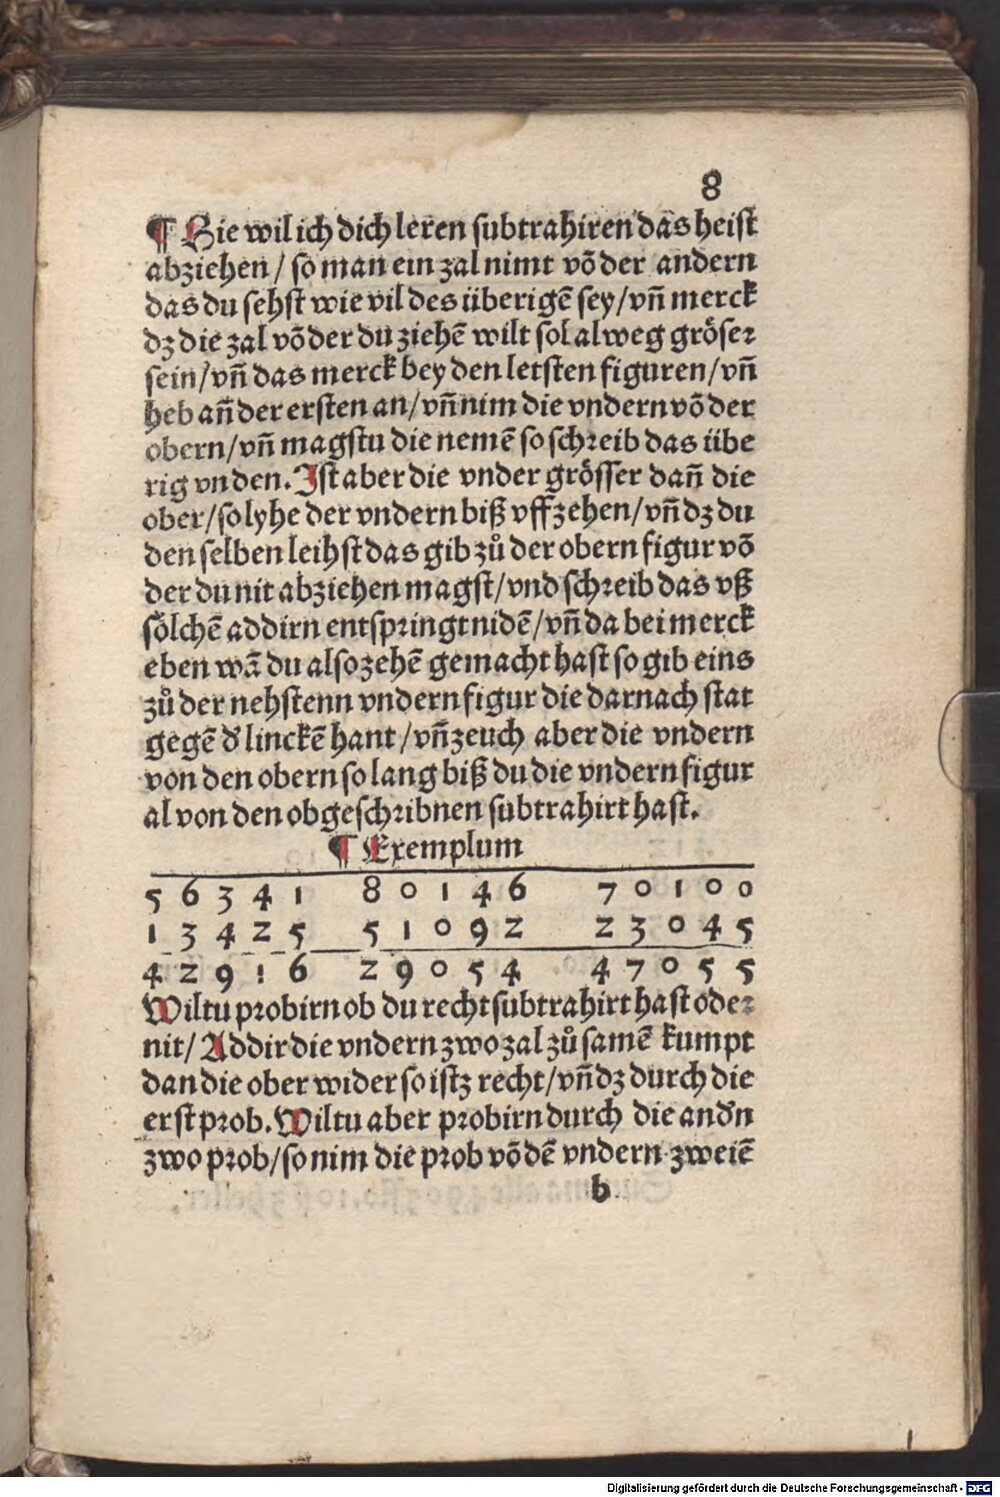 8
¶ Hie wil ich dich leren subtrahiren das heist
abziehen / so man ein zal nimt võ der andern
das du sehst wie vil des überigẽ sey / vñ merck
dz die zal võ der du ziehẽ wilt sol alweg gröser
sein / vñ das merck bey den letsten figuren / vñ
heb añ der ersten an / vñ nim die vndern võ der
obern / vñ magstu die nemẽ so schreib das übe
rig vnden. Ist aber die vnder grösser dañ die
ober / so lyhe der vndern biß vff zehen / vñ dz du
den selben leihst das gib zů der obern figur võ
der du nit abziehen magst / vnd schreib das vß
sölchẽ addirn entspringt nidẽ / vñ da bei merck
eben wã du also zehẽ gemacht hast so gib eins
zů der nehstenn vndern figur die darnach stat
gegẽ d' linckẽ hant / vñ zeuch aber die vndern
von den obern so lang biß du die vndern figur
al von den obgeschribnen subtrahirt hast.
¶ Exemplum
5 6 3 4 1 8 0 1 4 6 7 0 1 0 0
1 3 4 2 5 5 1 0 9 2 2 3 0 4 5
4 2 9 1 6 2 9 0 5 4 4 7 0 5 5
Wiltu probirn ob du recht subtrahirt hast oder
nit / Addir die vndern zwo zal zů samẽ kumpt
dan die ober wider so istz recht / vñ dz durch die
erst prob. Wiltu aber probirn durch die and'n
zwo prob / so nim die prob võ dẽ vndern zweiẽ
b
Digitalisierung gefördert durch die Deutsche Forschungsgemeinschaft - DFG